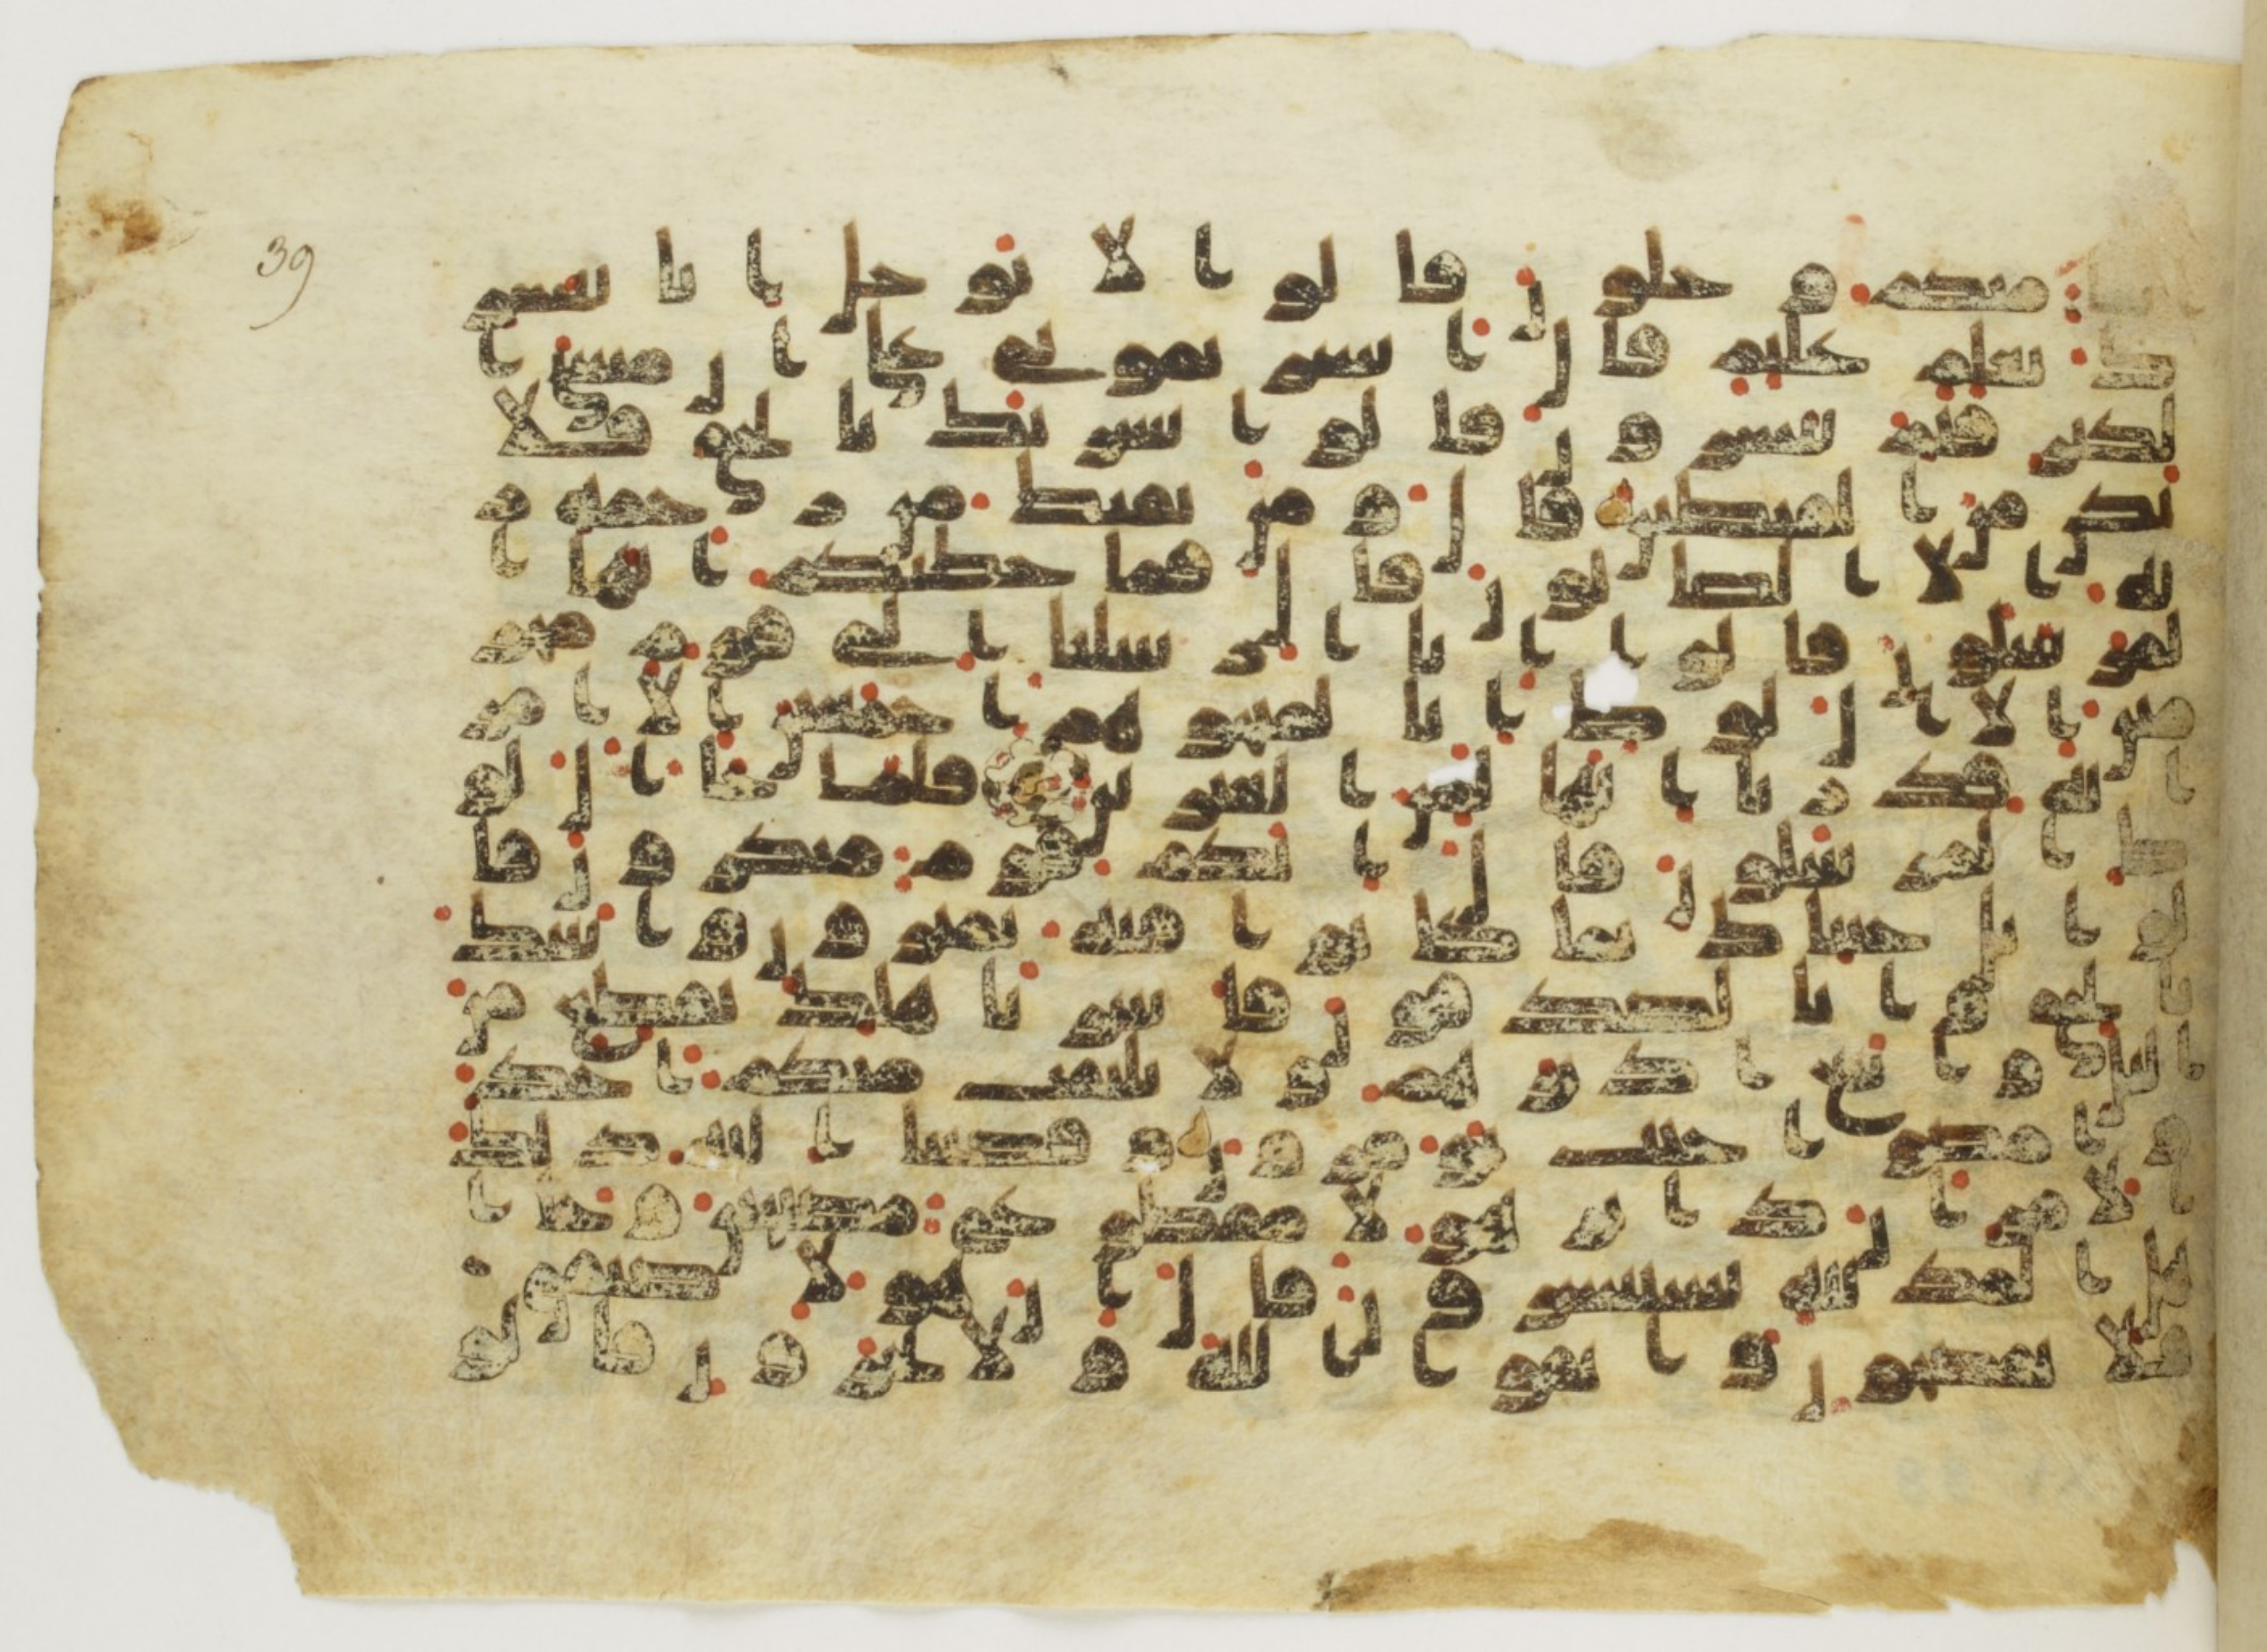 39
منكم وجلون قالوا لا توجل انا نبشر
ك بغلم عليم قال ابشرتمونى على ان مسنى ا
لكبر فبم تبشرون قالوا بشرنك بالحق فلا
تكن من القنطين قال ومن يقنط من رحمة ر
به الا الضالون قال فما خطبكم ايها ا
لمرسلون قالوا انا ارسلنا الى قوم مجر
مين الا ال لوط انا لمنجوهم اجمعين الا امر
اته قدرنا انها لمن الغبرين فلما جا ال لو
ط المرسلون قال انكم قوم منكرون قا
لوا بل جينك بما كانوا فيه يمترون واتينك
بالحق وانا لصدقون فاسر باهلك بقطع من
اليل واتبع ادبرهم ولا يلتفت منكم احد
وامضوا حيث تومرون وقضينا اليه ذلك
الامر ان دابر هولا مقطوع مصبحين وجا ا
هل المدينة يستبشرون قال ان هولا ضيفى
فلا تفضحون واتقوا الله ولا تخزون قالو